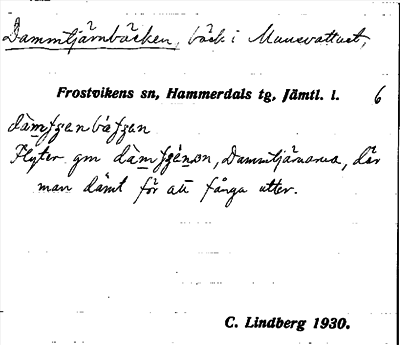 Dammtjärnbäcken, bäck i Mansvattnet,
Frostvikens sn, Hammerdals tg, Jämtl. l. 6
Flyter gm Dammtjärnarna, där
man dämt för att fånga utter.
C. Lindberg 1930.